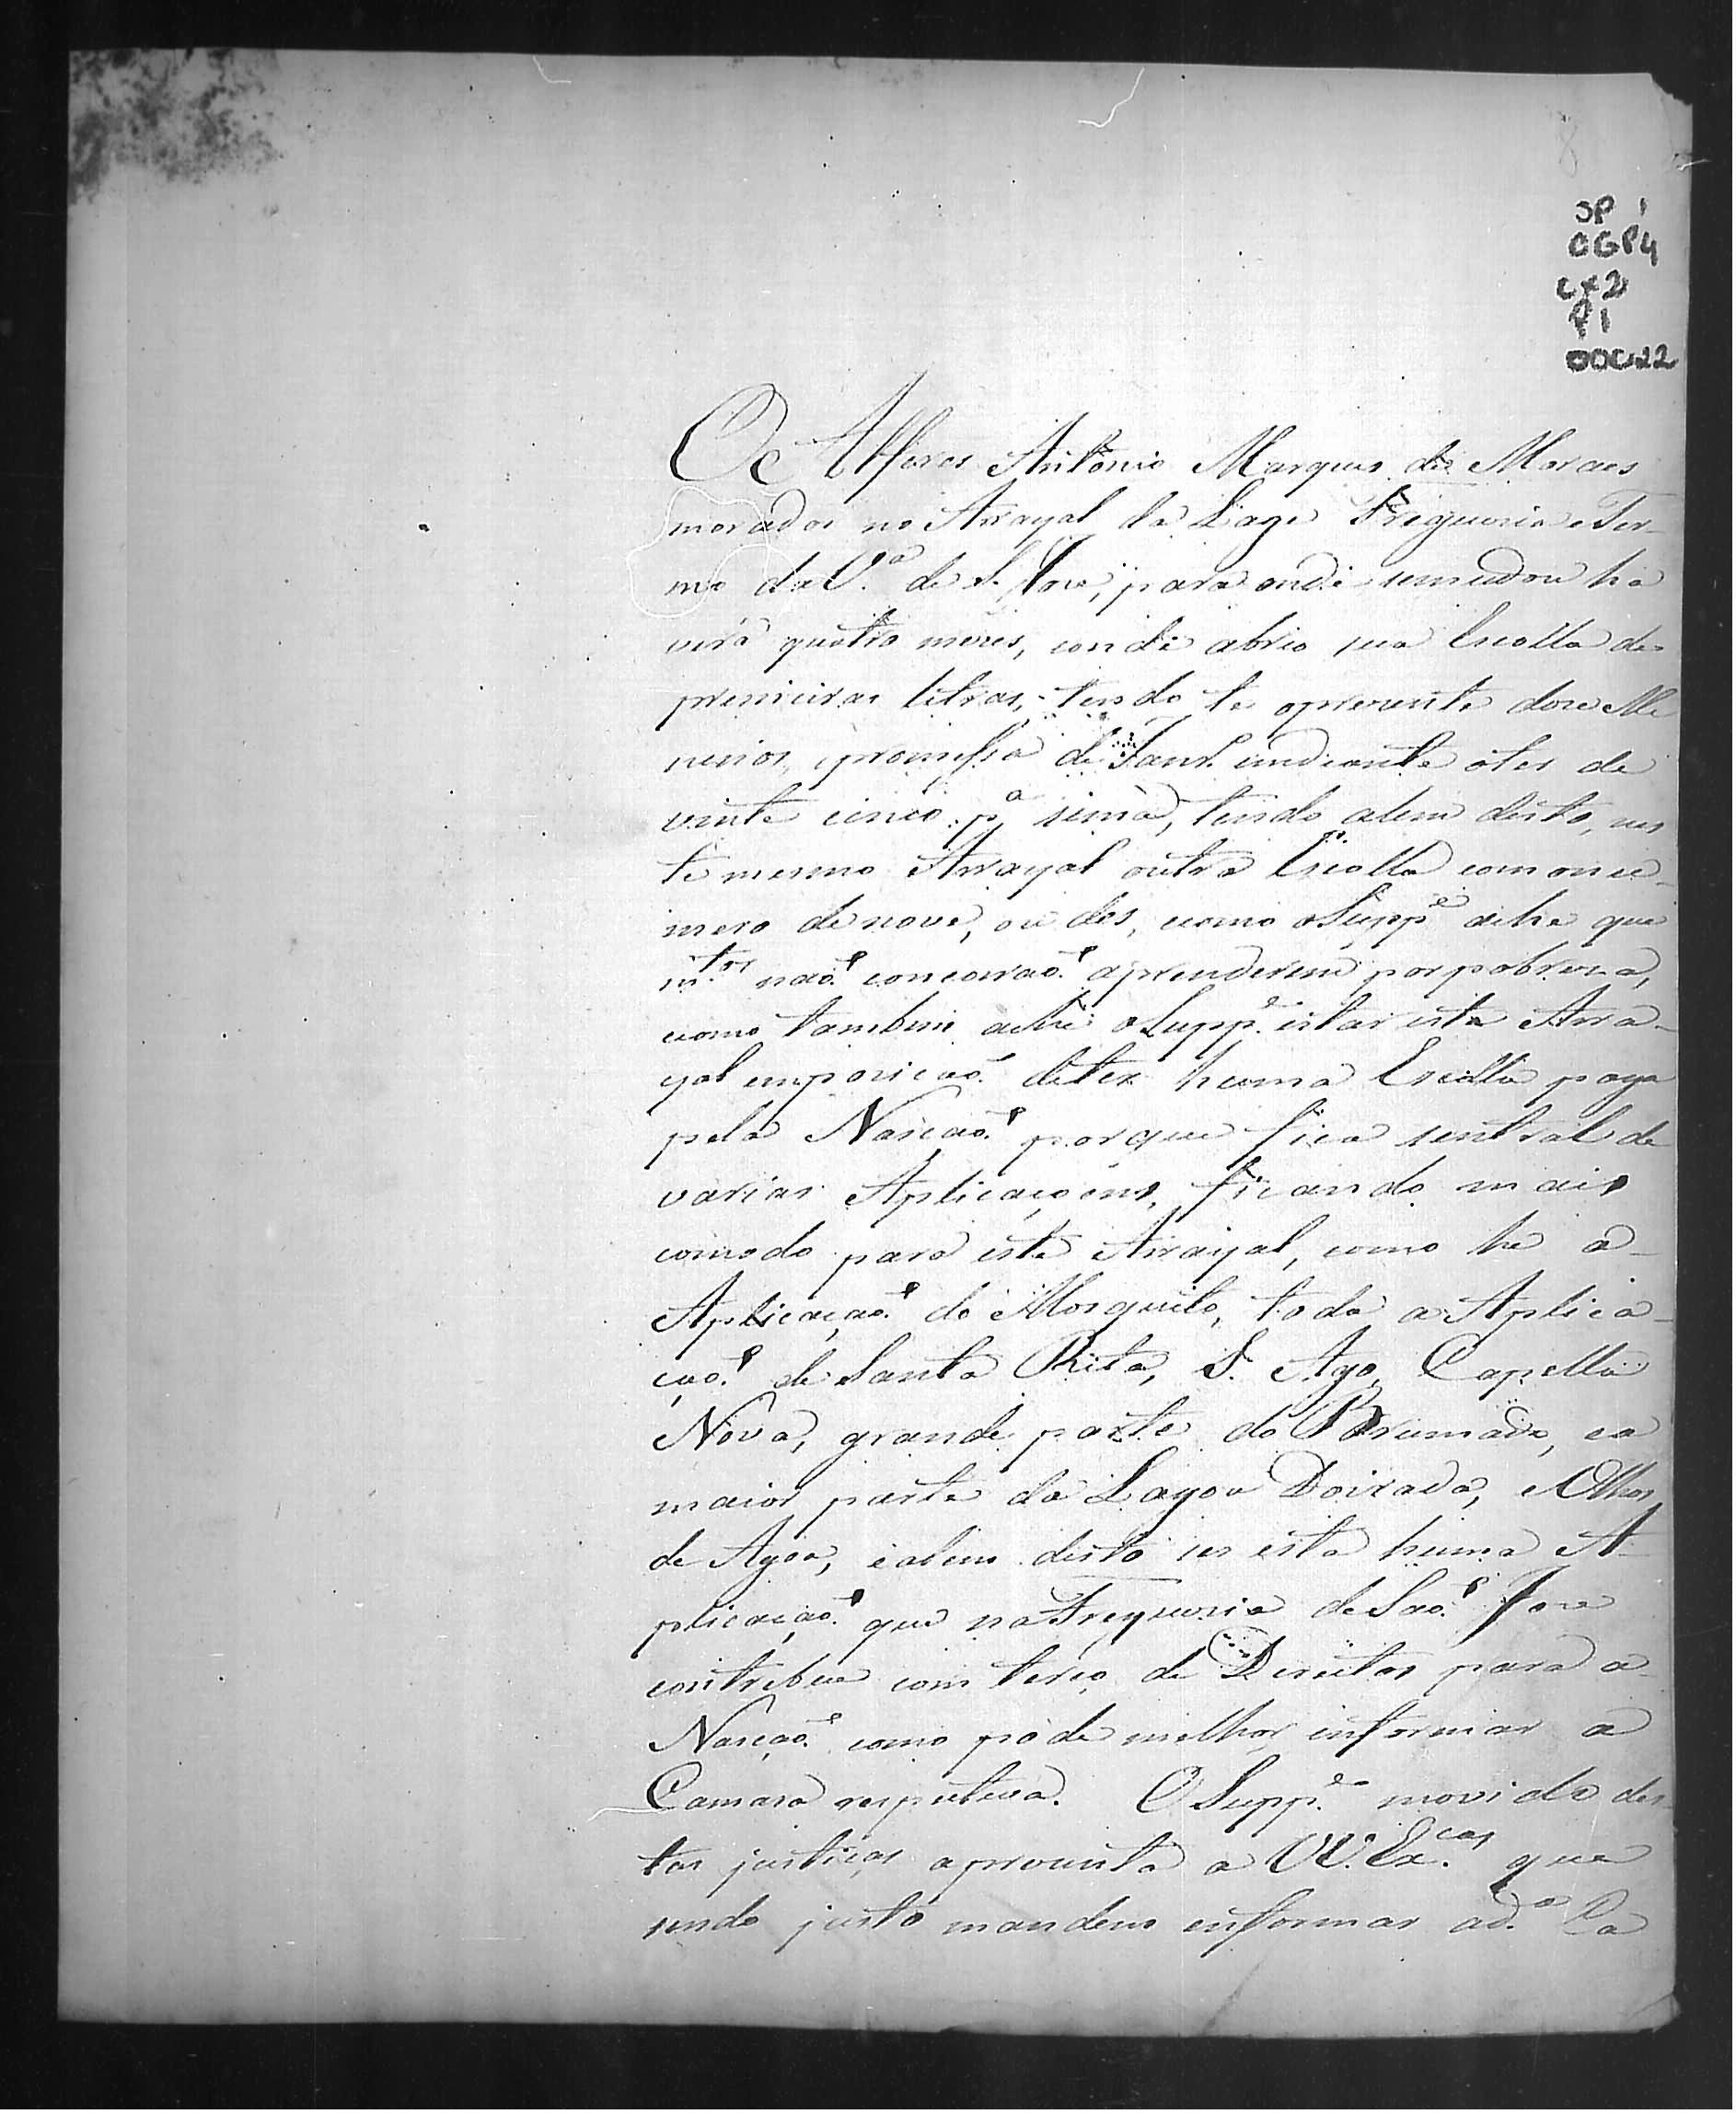 8
SP 1
OGP4
cx2
P1
DOC22
O Alferes Antônio Marques de Moraes
morador no Arrayal da Lage Freguezia e Ter-
mo da V.ª de S. Joze, para onde semudou ha
verá quatro mezes, eonde abrio sua Escolla de
premeiras letras, tendo te oprezente doze Me
ninos, epromessa de Janr. emdiante oter de
vinte cinco pª sima, tendo alem disto, nes
te mesmo Arrayal outra Escolla com onu-
mero denove, ou des, como oSuppe. acha que
mtos. naõ concorraõ aprenderem porpobreza,
como tambem acha oSuppe. estar este Arra-
yal empozicaõ deter huma Escolla paga
pela Nasçaõ porque fica sentral de
varias Aplicaçoens, ficando mais
comodo para este Arrayal, como he a
Aplicaçaõ do Mosquito, toda a Aplica-
çaõ de Santa Rita, S. Tiago, Capella
Nova, grande parte do Brumado, ea
maior parte da Lagoa Doirada, eOlhos
de Agoa, ealem disto ser esta huma A-
plicaçaõ que naFreguezia deSaõ Joze
contrebue com terço de Direitos para a
Nasçaõ como póde melhor enformar a
Camara respetiva. OSuppe. movido des-
tas justiças aprezenta a VV. Excas. que
sendo justo mandem enformar ad.ª Ca